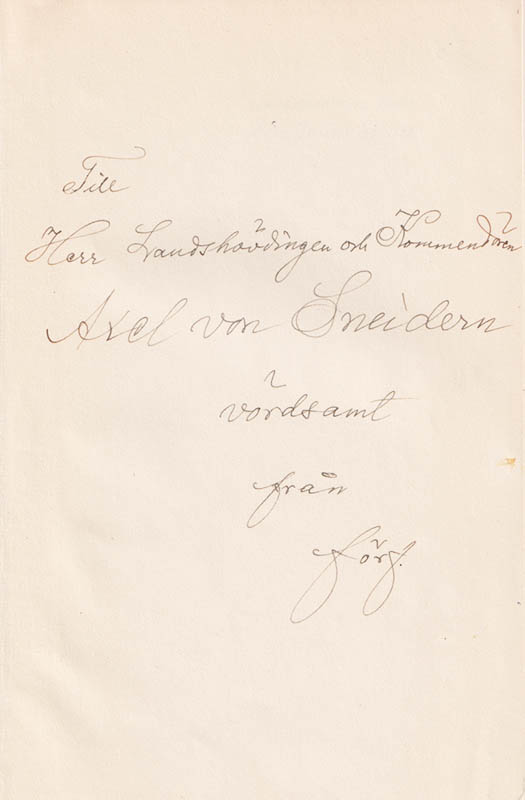 Till
Herr Landshövdingen och Kommendören
Axel von Sneidern
vördsamt
från
förf.